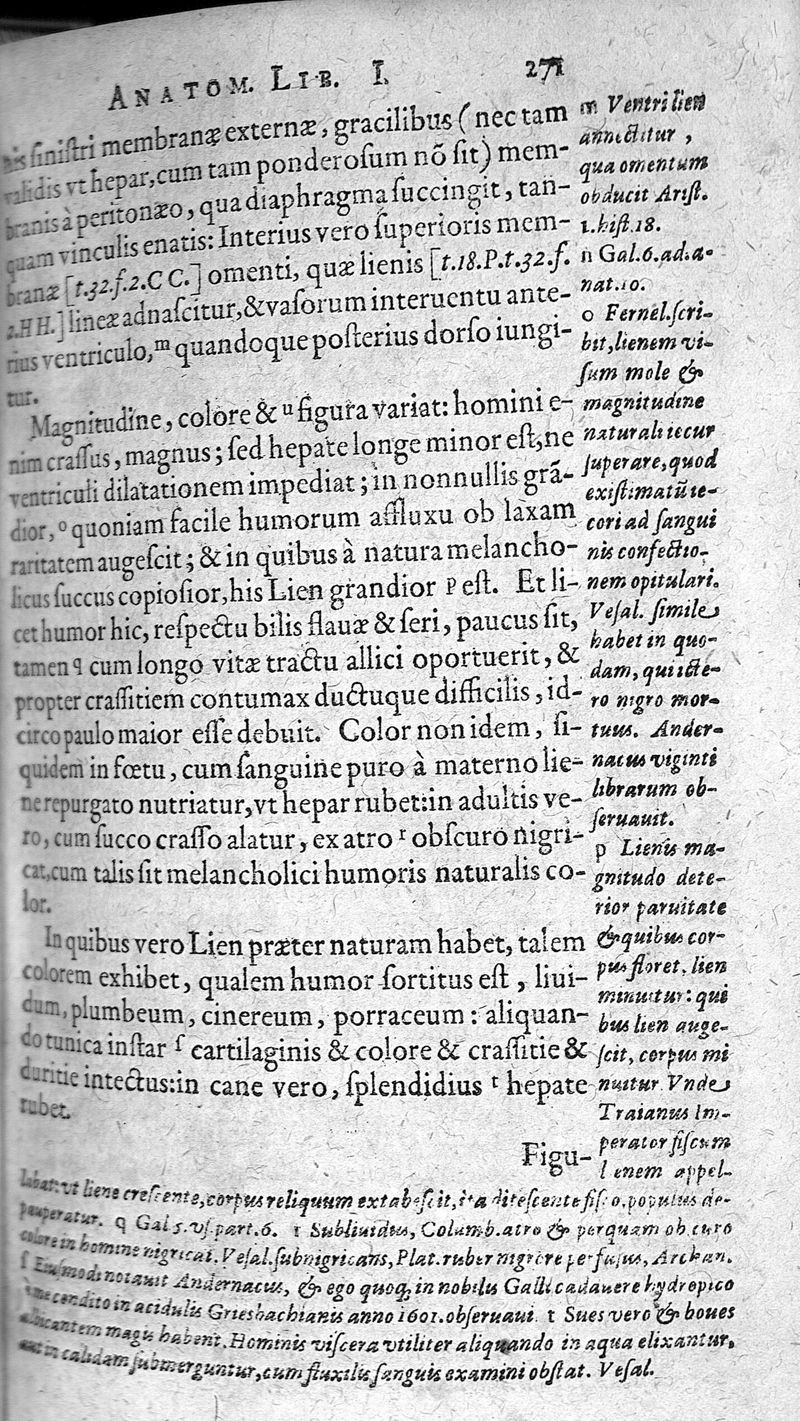 ANATOM. LIB. I. 271
nis sinistri membranæ externæ, gracilibus (nec tam
validis vt hepar, cum tam ponderosum nõ sit) mem-
branis à peritonæo, qua diaphragma succingit, tan-
quam vinculis enatis: Interius vero superioris mem-
branæ [t.32.f.2.CC.] omenti, quæ lienis [t.18.P.t.32.f.
2.HH.] lineæ adnascitur, & vasorum interuentu ante-
rius ventriculo, m quandoque posterius dorso iungi-
tur.
Magnitudine, colore & n figura variat: homini e-
nim crassus, magnus; sed hepate longe minor est, ne
ventriculi dilatationem impediat; in nonnullis grã-
dior, o quoniam facile humorum affluxu ob laxam
raritatem augescit; & in quibus à natura melancho-
licus succus copiosior, his Lien grandior p est. Et li-
cet humor hic, respectu bilis flauæ & seri, paucus sit,
tamen q cum longo vitæ tractu allici oportuerit, &
propter crassitiem contumax ductuque difficilis, id-
circo paulo maior esse debuit. Color non idem, si-
quidem in fœtu, cum sanguine puro à materno lie-
ne repurgato nutriatur, vt hepar rubet: in adultis ve-
ro, cum succo crasso alatur, ex atro r obscuro nigri-
cat, cum talis sit melancholici humoris naturalis co-
lor.
In quibus vero Lien præter naturam habet, talem
colorem exhibet, qualem humor sortitus est, liui-
dum, plumbeum, cinereum, porraceum: aliquan-
do tunica instar s cartilaginis & colore & crassitie &
duritie intectus: in cane vero, splendidius t hepate
rubet.
Figu-
m Ventri lien
annectitur,
qua omentum
obducit Arist.
1.hist.18.
n Gal.6.ad.a-
nat.10.
o Fernel.scri-
bit, lienem vi-
sum mole &
magnitudine
naturali iecur
superare, quod
existimatũ ie-
cori ad sangui
nis confectio-
nem opitulari.
Vesal. simile
habet in quo-
dam, qui icte-
ro nigro mor-
tuus. Ander-
nacus viginti
librarum ob-
seruauit.
p Lienis ma-
gnitudo dete-
rior paruitate
& quibus cor-
pus floret, lien
minuitur: qui
bus lien auge-
scit, corpus mi
nuitur. Vnde
Traianus Im-
perator fiscum
lienem appel-
labat: vt liene crescente, corpus reliquum extabescit, ita ditescente fisco, populus de-
pauperatur. q Gal 5. vs. part.6. r Subliuidus, Columb. atro & perquam obscuro
colore in homine nigricat. Vesal. subnigricans, Plat. ruber nigrore perfusus, Archan.
s Eiusmodi notauit Andernacus, & ego quoq; in nobilis Galli cadauere hydropico
à me condito in acidulis Griesbachianis anno 1601. obseruaui. t Sues vero & boues
albicantem magis habent. Hominis viscera vtiliter aliquando in aqua elixantur,
aut in calidam submerguntur, cum fluxilis sanguis examini obstat. Vesal.